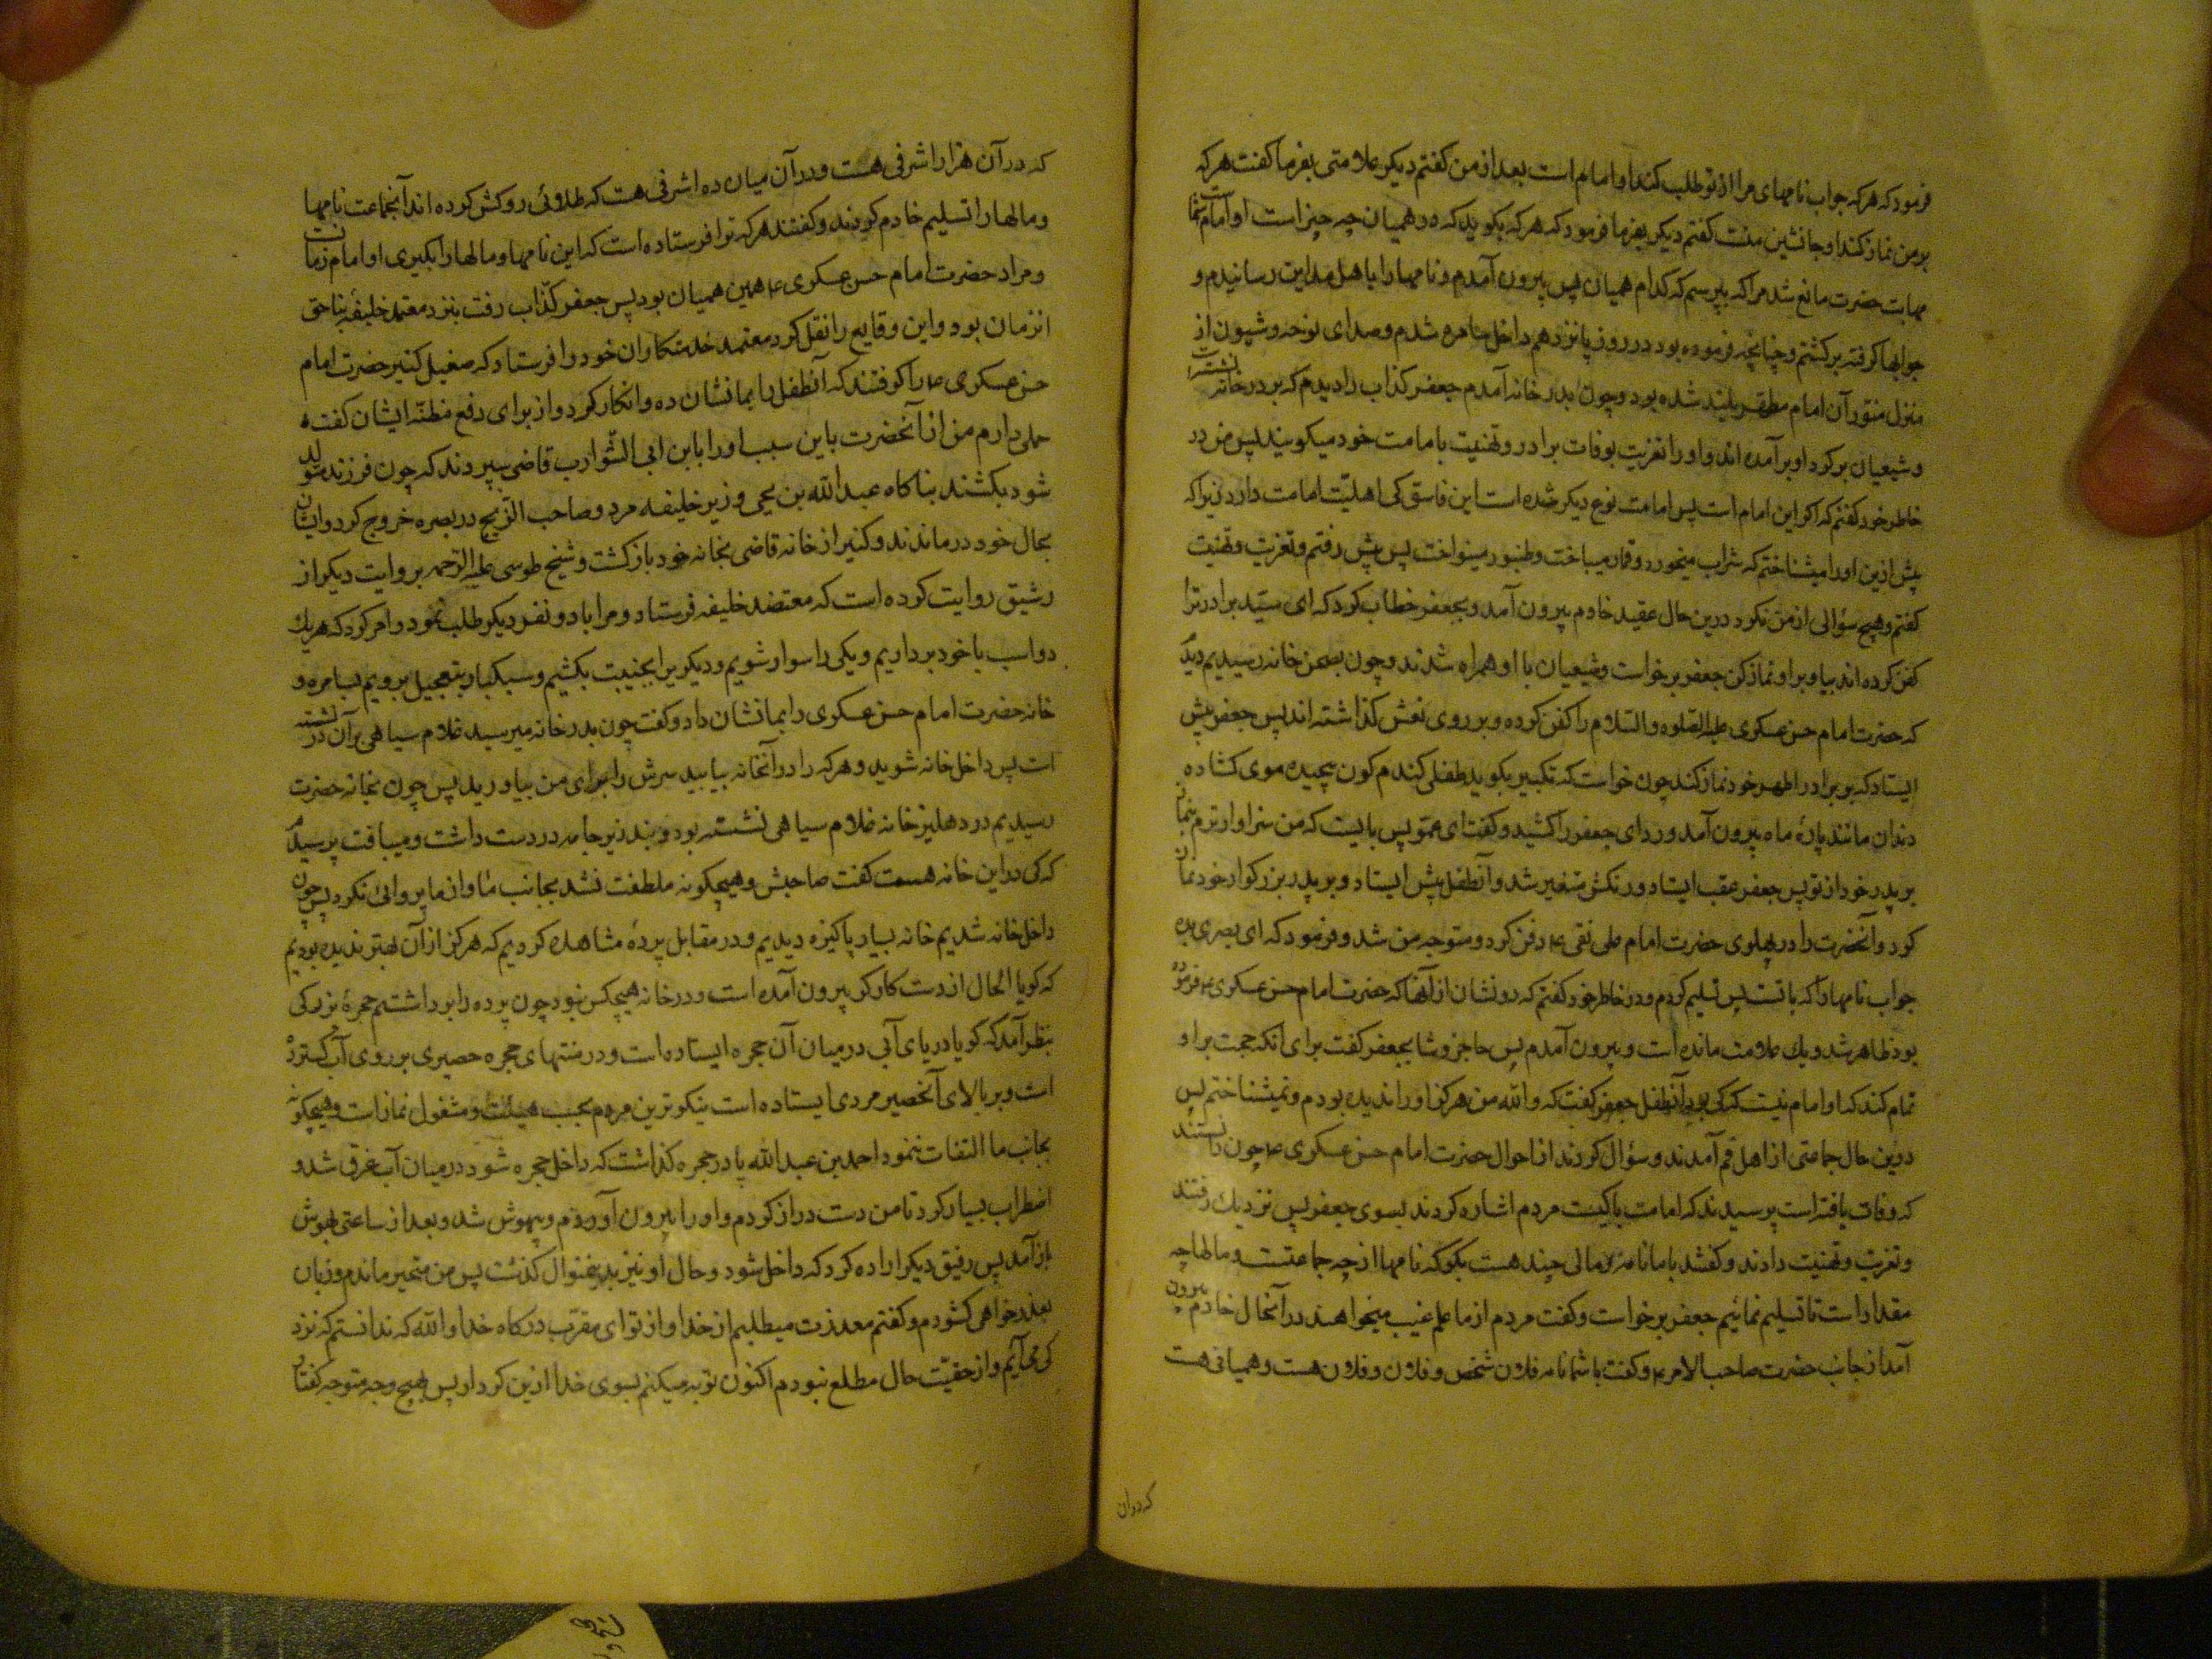 فرمود که هر که جواب نامهای مرا از تو طلب کند او امام است بعد از من کفتم دیکر علامتی بفرما کفت هر که
بر من نماز کند او جانشین منست کفتم دیکر بفرما فرمود که هر که بکوید که در همیان چه چیز است او امام شماست
مهابت حضرت مانع شد مرا که بپرسم که کدام همیان پس بیرون آمدم و نامها را باهل مداین رسانیدم و
جوابها کرفته برکشتم و چنانچه فرموده بود در روز پانزدهم داخل سامره شدم و صدای نوحه و شیون از
منزل منور آن امام مطهر بلند شده بود و چون بدر خانه آمدم جعفر کذاب را دیدم که بر در خانه نشسته
و شیعیان بر کرد او برآمده اند و او را تعزیت بوفات برادر و تهنیت بامامت خود میکویند پس من در
خاطر خود کفتم که اکر این امام است پس امامت نوع دیکر شده است این فاسق کی اهلیّت امامت دارد زیرا که
پیش ازین او را میشناختم که شراب میخورد و قمار میباخت و طنبور مینواخت پس پیش رفتم و تعزیت و تهنیت
کفتم و هیچ سؤالی از من نکرد درین حال عقید خادم بیرون آمد و بجعفر خطاب کرد که ای سیّد برادر ترا
کفن کرده اند بیا و بر او نماز کن جعفر برخواست و شیعیان با او همراه شدند و چون بصحن خانه رسیدیم دیدیم
که حضرت امام حسن عسکری علیه الصلوه والسّلام را کفن کرده و بر روی نعش کذاشته اند پس جعفر پیش
ایستاد که بر برادر اطهر خود نماز کند چون خواست که تکبیر بکوید طفلی کندم کون پیچیده موی کشاده
دندان مانند پارهٔ ماه بیرون آمد و ردای جعفر را کشید و کفت ای عمو پس بایست که من سزاوارترم بنماز
بر پدر خود از تو پس جعفر عقب ایستاد و رنکش متغیر شد و آنطفل پیش ایستاد و بر پدر بزرکوار خود نماز
کرد و آنحضرت را در پهلوی حضرت امام علی نقی ع دفن کرد و متوجه من شد و فرمود که ای بصری بده
جواب نامها را که با تست پس تسلیم کردم و در خاطر خود کفتم که دو نشان از آنها که حضرت امام حسن عسکری ع فرموده
بود ظاهر شد و یک علامت مانده است و بیرون آمدم پس حاجز وشا بجعفر کفت برای آنکه حجت بر او
تمام کند که او امام نیست که کی بود آنطفل جعفر کفت که والله من هرکز او را ندیده بودم و نمیشناختم پس
درین حال جماعتی از اهل قم آمدند و سؤال کردند از احوال حضرت امام حسن عسکری ع چون دانستند
که وفات یافته است پرسیدند که امامت با کیست مردم اشاره کردند بسوی جعفر پس نزدیک رفتند
و تعزیت و تهنیت دادند و کفتند با ما نامه و مالی چند هست بکو که نامها از چه جماعتست و مالها چه
مقدار است تا تسلیم نمائیم جعفر برخواست و کفت مردم از ما علم غیب میخواهند در آنحال خادم بیرون
آمد از جانب حضرت صاحب الامر ع و کفت با شما نامه فلان شخص و فلان و فلان هست و همیانی هست
که در آن
که در آن هزار اشرفی هست و در آن میان ده اشرفی هست که طلائی روکش کرده اند آنجماعت نامها
و مالها را تسلیم خادم کردند و کفتند هر که ترا فرستاده است که این نامها و مالها را بکیری او امام زمانست
و مراد حضرت امام حسن عسکری ع همین همیان بود پس جعفر کذّاب رفت بنزد معتمد خلیفهٔ بناحق
انزمان بود و این وقایع را نقل کرد معتمد خدمتکاران خود را فرستاد که صقیل کنیز حضرت امام
حسن عسکری ع را کرفتند که آنطفل را بما نشان ده و انکار کرد و از برای رفع مظنّه ایشان کفت که
حملی دارم من از آنحضرت باین سبب او را بابن ابی الشّوارب قاضی سپردند که چون فرزند متولد
شود بکشند بناکاه عبدالله بن یحیی وزیر خلیفه مرد و صاحب الزنج در بصره خروج کرد و ایشان
بحال خود درماندند و کنیز از خانه قاضی بخانه خود بازکشت و شیخ طوسی علیه الرّحمه بروایت دیکر از
رشیق روایت کرده است که معتضد خلیفه فرستاد و مرا با دو نفر دیکر طلب نمود و امر کرد که هر یک
دو اسب با خود برداریم و یکی را سوار شویم و دیکریرا بجنیبت بکشیم و سبکبار بتعجیل برویم بسامره و
خانه حضرت امام حسن عسکری را بما نشان داد و کفت چون بدر خانه میرسید غلام سیاهی بر آن در نشسته
است پس داخل خانه شوید و هر که را در آنخانه بیابید سرش را برای من بیاورید پس چون بخانه حضرت
رسیدیم در دهلیز خانه غلام سیاهی نشسته بود و بند زیر جامه در دست داشت و میبافت پرسیدیم
که کی در این خانه هست کفت صاحبش و هیچکونه ملطفت نشد بجانب ما و از ما پروائی نکرد پس چون
داخل خانه شدیم خانه بسیار پاکیزه دیدیم و در مقابل پردهٔ مشاهده کردیم که هرکز از آن بهتر ندیده بودیم
که کویا الحال از دست کارکر بیرون آمده است و در خانه هیچکس نبود چون پرده را برداشتیم حجرهٔ بزرکی
بنظر آمد که کویا دریای آبی در میان آن حجره ایستاده است و در منتهای حجره حصیری بر روی آب کسترده
است و بر بالای آنحصیر مردی ایستاده است نیکوترین مردم بحسب هیئت و مشغول نماز است و هیچکونه
بجانب ما التفات ننمود احمد بن عبدالله پا در حجره کذاشت که داخل حجره شود در میان آب غرق شد و
اضطراب بسیار کرد تا من دست دراز کردم و او را بیرون آوردم و بیهوش شد و بعد از ساعتی بهوش
بازآمد پس رفیق دیکر اراده کرد که داخل شود و حال او نیز بدینمنوال کذشت پس من متحیر ماندم و زبان
بعذر خواهی کشودم و کفتم معذرت میطلبم از خدا و از تو ای مقرّب درکاه خدا والله که ندانستم که نزد
کی می آیم و از حقیّت حال مطلع نبودم اکنون توبه میکنم بسوی خدا ازین کردار پس بهیچ وجه متوجه کفتار